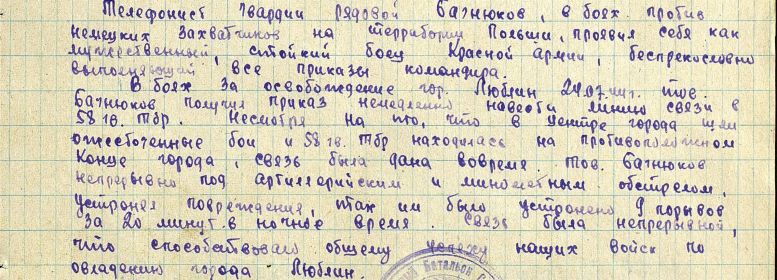 Телефонист гвардии рядовой Багнюков, в боях против
немецких захватчиков на территории Польши, проявил себя как
мужественный, стойкий боец Красной армии, беспрекословно
выполняющий все приказы командира.
В боях за освобождение гор. Люблин 24.07.44г. тов.
Багнюков получил приказ немедленно навести линию связи в
58 гв. тбр. Несмотря на то, что в центре города шли
ожесточенные бои и 58 гв. тбр находилась на противоположном
конце города, связь была дана вовремя тов. Багнюков
непрерывно под артиллерийским и минометным обстрелом,
устронял повреждения, так им было устронено 9 порывов
за 20 минут в ночное время. Связь была непрерывной,
что способствовало общему успеху наших войск по
овладению города Люблин.
Батальон